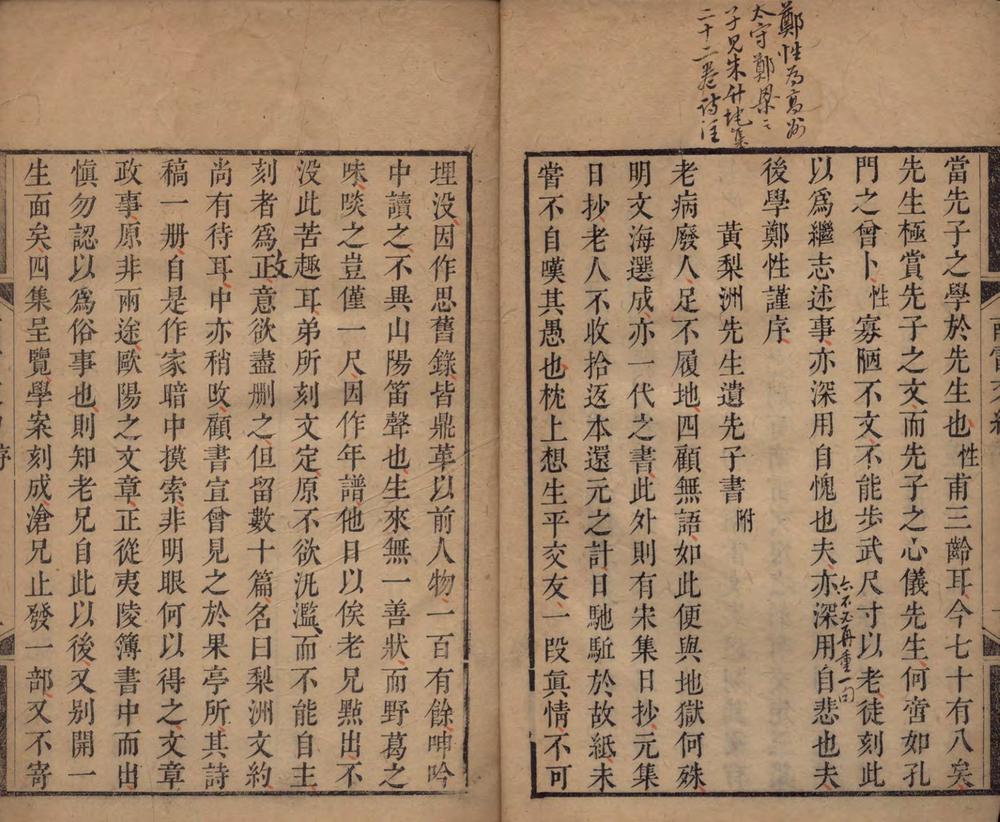 鄭性為高州
太守鄭梁之
子見朱竹垞集
二十二卷詩注
當先子之學於先生也性甫三齡耳今七十有八矣
先生極賞先子之文而先子之心儀先生何啻如孔
門之曾卜性寡陋不文不能步武尺寸以老徒刻此
以為繼志述事亦深用自愧也夫亦深用自悲也夫
亦不必再重一句
後學鄭性謹序
黃梨洲先生遺先子書附
老病廢人足不履地四顧無語如此便與地獄何殊
明文海選成亦一代之書此外則有宋集日抄元集
日抄老人不收拾返本還元之計日馳騁於故紙未
嘗不自嘆其愚也枕上想生平交友一段眞情不可
埋没因作思舊錄皆鼎革以前人物一百有餘呻吟
中讀之不異山陽笛聲也生來無一善狀而野葛之
味啖之豈僅一尺因作年譜他日以俟老兄㸃出不
没此苦趣耳弟所刻文定原不欲汎濫而不能自主
刻者為正意欲盡删之但留數十篇名曰梨洲文約
改
尚有待耳中亦稍攺顧書宣曾見之於果亭所其詩
稿一册自是作家暗中摸索非明眼何以得之文章
政事原非兩途歐陽之文章正從夷陵簿書中而出
愼勿認以為俗事也則知老兄自此以後又别開一
生面矣四集呈覽學案刻成滄兄止發一部又不寄